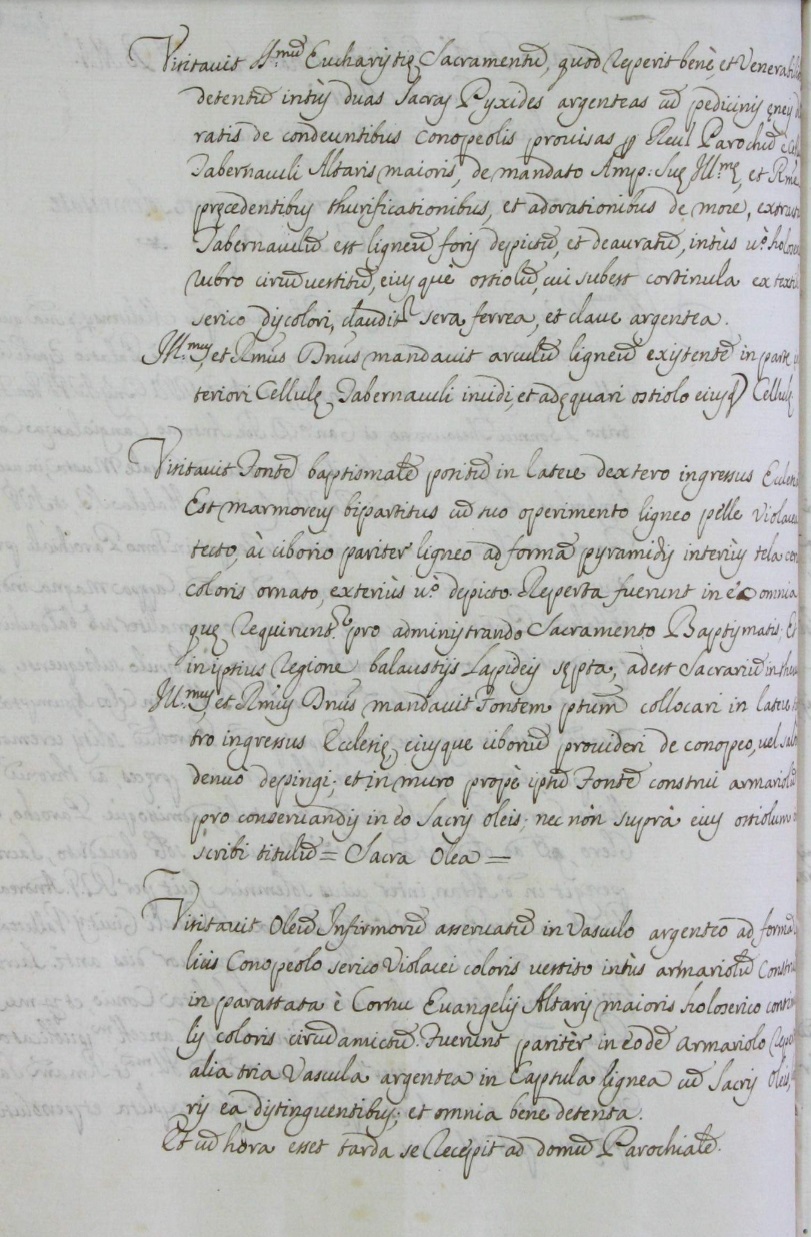 Visitavit SS.mũ Eucharistię Sacramentũ, quod reperit benè, et Venerabili
detentũ intùs duas Sacras Pyxides argenteas cũ pedicinis ęneis
ratis de condecentibus conopeolis provisas p Reu.l Parochũ è Cell
Tabernaculi Altaris maioris, de mandato Amp: Suę Ill.mę, et R.mę
pręcedentibus thurificationibus, et adorationibus de more, extract
Tabernaculũ est ligneũ foris depictũ, et deauratũ, intùs v.o holoser
rubro circũvestitũ, eiusquè ostiolũ, cui subest cortinula ex textili
serico discolori, claudit.r sera ferrea, et clave argentea.
Ill.mus, et R.mus Dñus mandavit arculũ ligneũ existentẽ in parte
teriori Cellulę Tabernaculi incidi, et adęquari ostiolo eiusd Cellulę
Visitavit Fontẽ baptismalẽ positũ in latere dextero ingressus Eccles
Est marmoreus bipartitus cũ suo operimento ligneo pelle violacea
tecto, ac ciborio pariter ligneo ad formã pyramidis interiùs tela con
coloris ornato, exteriùs v.o depicto. Reperta fuerunt in eo omnia
quę requirunt.r pro administrando Sacramento Baptismatis. Et
in ipsius regione balaustijs lapideis septa, adest Sacrariũ
Ill.mus, et R.mus Dñus mandavit Fontem ptum collocari in latere
tro ingressus Ecclesię, eiusque ciboriũ provideri de conopeo, vel
denuò depingi; et in muro propè ipsũ Fontẽ construi armariolũ
pro conservandis in eo Sacris oleis; nec nòn suprà eius ostiolum
scribi titulũ = Sacra Olea =
Visitavit Oleũ Infirmorũ asservatũ in Vasculo argenteo ad formã
licis Conopeolo serico Violacei coloris vestito intùs armariolũ constru
in parastata è Cornu Evangelij Altaris maioris holoserico
lis coloris circũdamictũ. Fuerunt pariter in eodẽ armariolo reper
alia tria Vascula argentea in Capsula lignea cũ Sacris Oleis,
rijs ea distinguentibus; et omnia bene detenta.
Et cũ hora esset tarda se recepit ad domũ Parochialẽ.